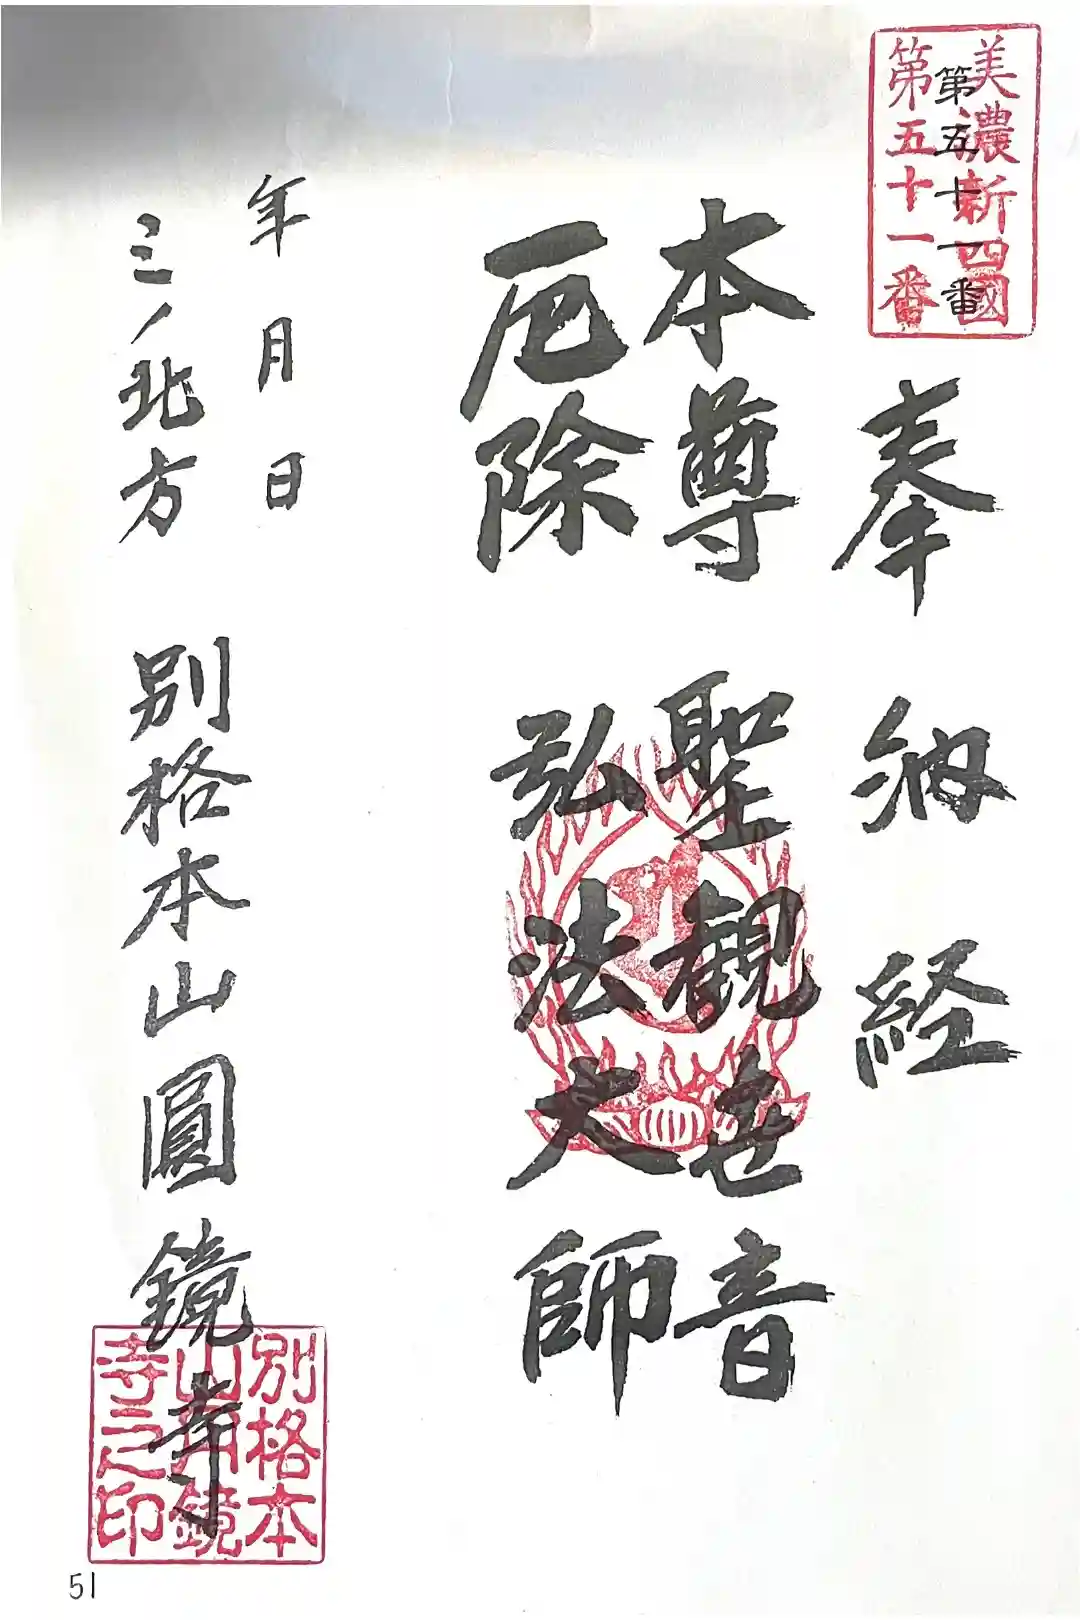 美濃新四國
第五十一番
第五十一番
奉納経
本尊聖観世音
厄除弘法大師
年月日
三ノ北方別格本山圓鏡寺
別格本
山円鏡
寺之印
51